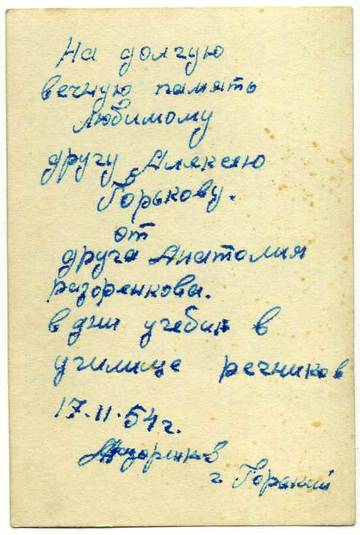 На долгую
вечную память
любимому
другу Алексею
Горькову.
от
друга Анатолия
Разоренкова.
в дни учебы в
училище речников
17.11.54г.
г. Горький